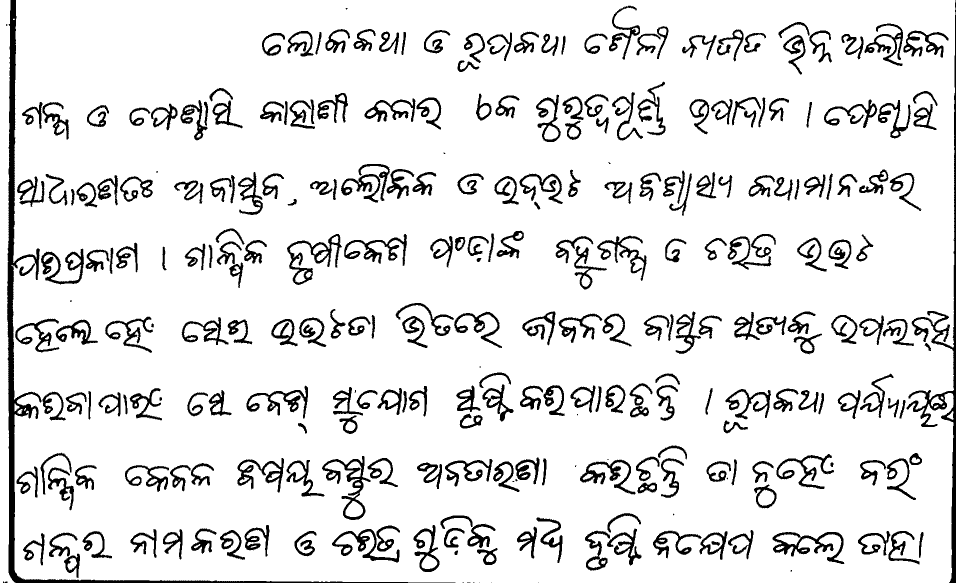 ଲୋକକଥା ଓ ରୂପକଥା ଶୈଳୀ ବ୍ୟତୀତ ଭିନ୍ନ ଅଲୌକିକ
ଗଳ୍ପ ଓ ଫେଣ୍ଟାସି କାହାଣୀ କଳାର ଏକ ଗୁରୁତ୍ୱପୂର୍ଣ୍ଣ ଉପାଦାନ । ଫେଣ୍ଟାସି
ସାଧାରଣତଃ ଅବାସ୍ତବ, ଅଲୌକିକ ଓ ଉଦ୍‌ଭଟ ଅବିଶ୍ୱାସ୍ୟ କଥାମାନଙ୍କର
ପରିପ୍ରକାଶ । ଗାଳ୍ପିକ ହୃଷୀକେଶ ପଂଡ଼ାଙ୍କ ବହୁଗଳ୍ପ ଓ ଚରିତ୍ର ଉଭଟ
ହେଲେ ହେଁ ସେଇ ଉଭଟତା ଭିତରେ ଜୀବନର ବାସ୍ତବ ସତ୍ୟକୁ ଉପଲବ୍‌ଧି
କରିବା ପାଇଁ ସେ ବେଶ୍ ସୁଯୋଗ ସୃଷ୍ଟି କରିପାରିଛନ୍ତି । ରୂପକଥା ପର୍ଯ୍ୟାୟରେ
ଗାଳ୍ପିକ କେବଳ ବିଷୟ ବସ୍ତୁର ଅବତାରଣା କରିଛନ୍ତି ତା ନୁହେଁ ବରଂ
ଗଳ୍ପର ନାମକରଣ ଓ ଚରିତ୍ର ଗୁଡ଼ିକୁ ମଧ୍ୟ ଦୃଷ୍ଟି ନିକ୍ଷେପ କଲେ ତାହା